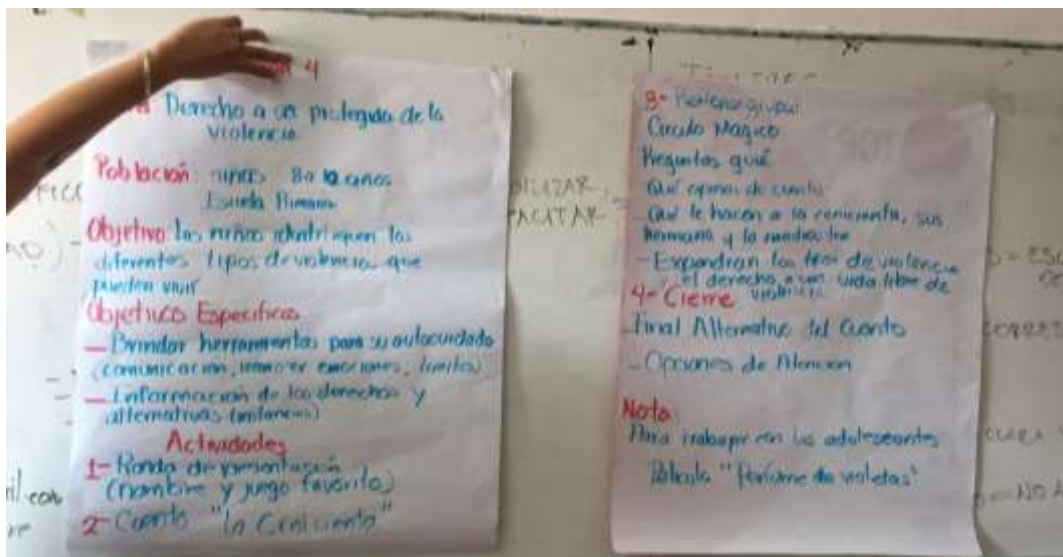 4
Derecho a ser protegida de la
violencia
Población: niñas 8 a 12 años
Escuela Primaria
Objetivo: las niñas identifiquen los
diferentes tipos de violencia que
pueden vivir
Objetivos Especificos
- Brindar herramientas para su autocuidado
(comunicación, emociones, limites)
- Información de los derechos y
alternativas
Actividades
1- Ronda de presentación
(nombre y juego favorito)
2- Cuento "la Cenicienta"
3-
Circulo Magico
Preguntas guia
que opinas de cuento
que le hacen a la cenicienta, sus
hermana y la madrastra
- Expondran los tipos de violencia
el derecho a una vida libre de
violencia
4- Cierre
Final Alternativo del Cuento
- Opciones de Atencion
Nota
Para trabajar con las adolescentes
Pelicula "Perfume de violetas"